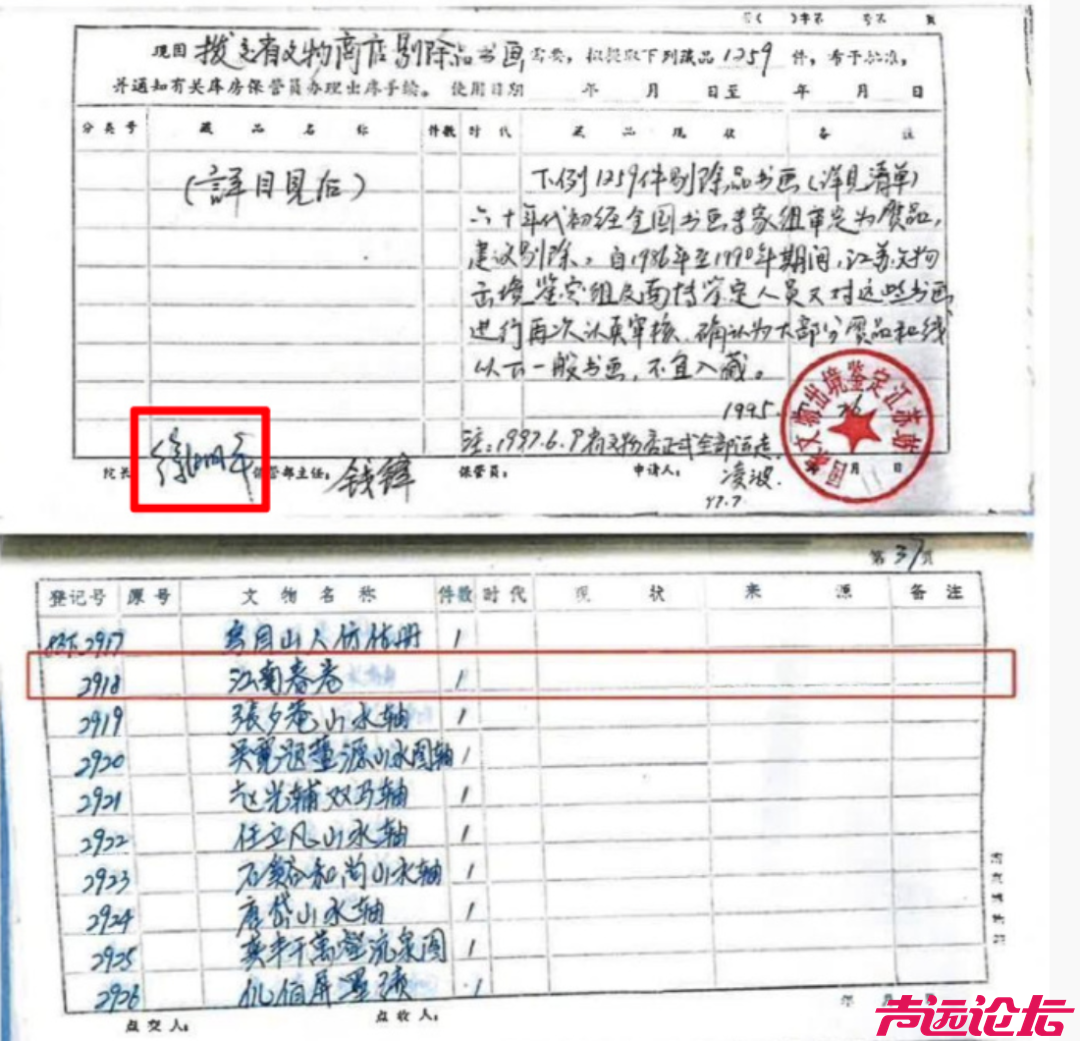 现因拨交省文物商店剔除品书画需要，拟提取下列藏品1259件，希予批准，
并通知有关库房保管员办理出库手续。 使用日期 年 月 日至 年 月 日
分类号 藏品名称 件数 时代 藏品现状 备注
(詳目見后)
下例1259件剔除品书画(详见清单)
六十年代初经全国书画专家组审定为赝品，
建议剔除。自1986年至1990年期间，江苏文物
出境鉴定组及南博鉴定人员又对这些书画
进行再次认真审核，确认为大部分赝品和线
以下一般书画，不宜入藏。
1995.
注：1997.6.9省文物店正式全部运走.
院长 徐湖平 保管部主任：钱锋 保管员： 申请人： 凌波.
97.7
文物出境鉴定江苏站
月 日
第37页
登记号 原号 文物名称 件数 时代 现状 来源 备注
2917 山人仿 册 1
2918 江南春卷 1
2919 張夕菴山水轴 1
2920 吴寬题董源山水图轴 1
2921 赵光辅双马轴 1
2922 任立凡山水轴 1
2923 石溪和尚山水轴 1
2924 唐岱山水轴 1
2925 千萬壑流泉图 1
2926 仇 屏 1
年 月 日
点交人： 点收人：
声远论坛